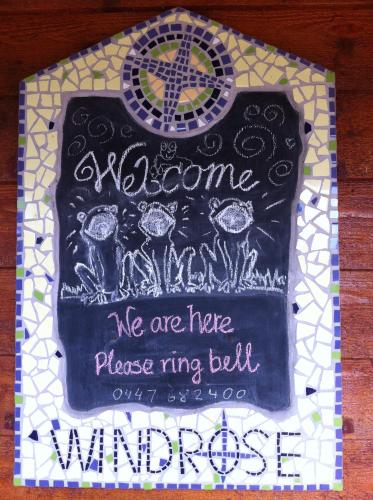 Welcome
We are here
Please ring bell
0447 682400
WINDROSE